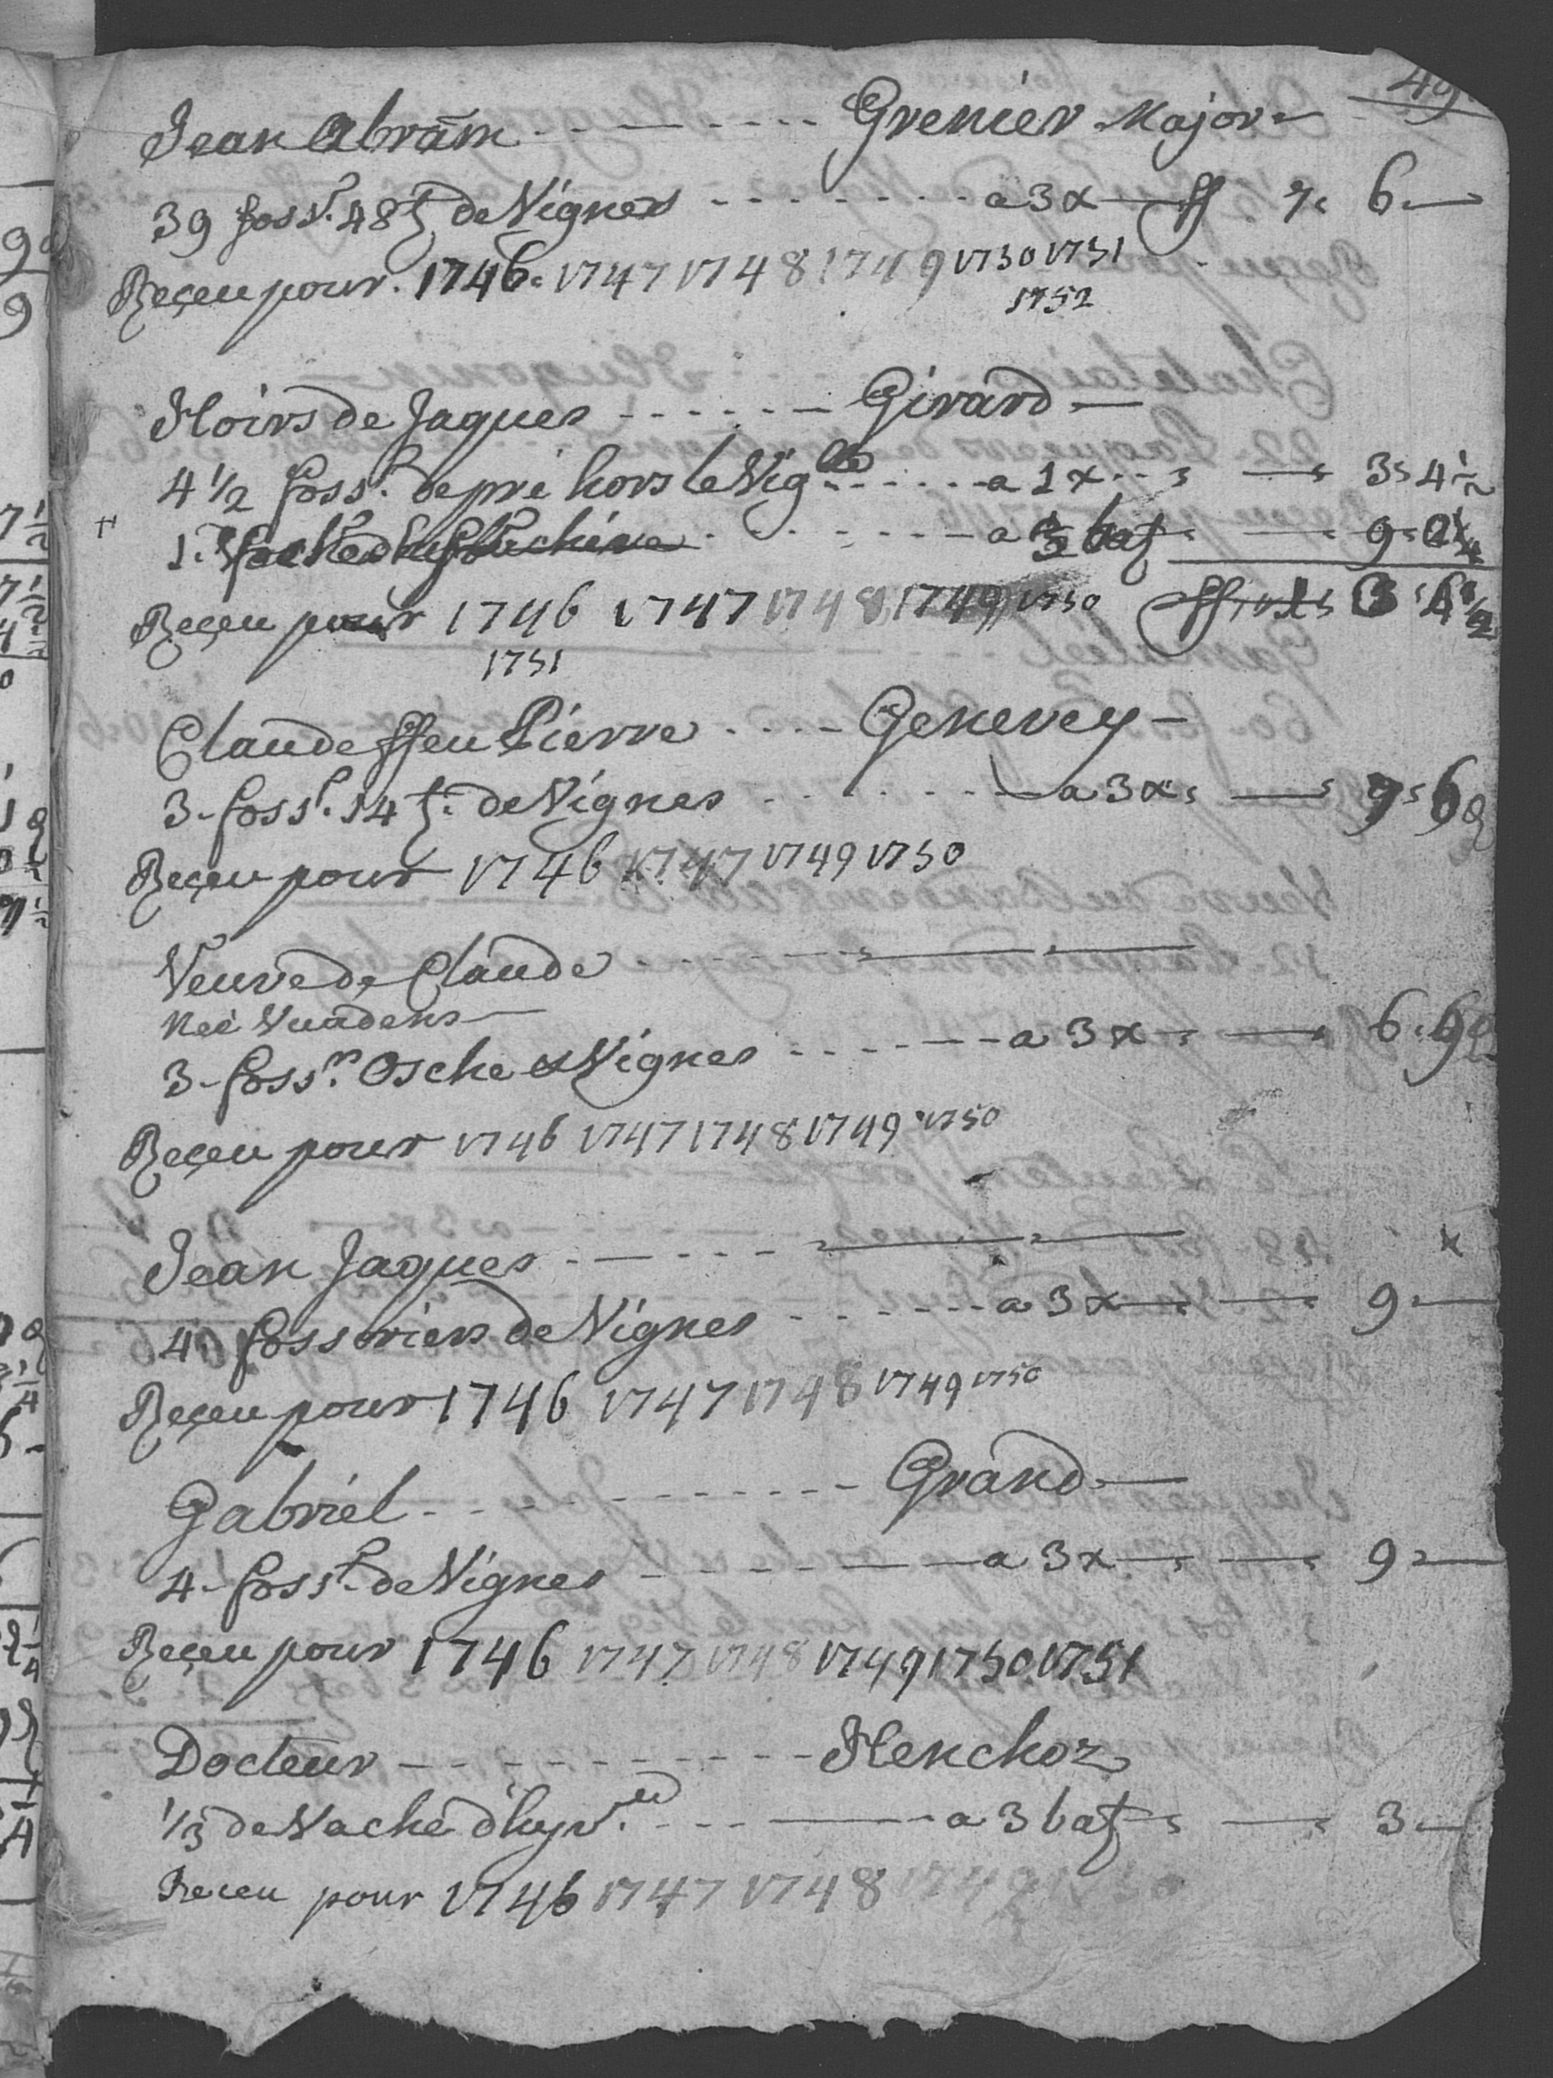 49
Jean Abram - - - - - - - Grenier Major
39 foss.rs 48 t. de Vignes - - - - - - - a 3 x — ff 7. 6.—
Reçeu pour. 1746. 1747 1748 1749 1750 1751
1752
Hoirs de Jaques - - - - - - Girard —
4 1/2 foss.rs de pré hors le Vig.ble - - - - - a 1 x - - s — s 3 s 4 1/2
1. Vache - - - - - - a 3 batz s — 9 s
Reçeu pour 1746 1747 1748 1749 1750 ff 3 s 4 1/2
1751
Claude ffeu Pierre - - - - Genevey —
3 - foss.rs 14 t. de Vignes - - - - - - - a 3 x s — s 7 s 6 q
Reçeu pour 1746 1747 1749 1750
Veuve de Claude - - - - - - — —
née Vuadens —
3 - foss.rs Osche et Vignes - - - - - - a 3 x s — s 6 s 9
Reçeu pour 1746 1747 1748 1749 1750
Jean Jaques - - - - - - - — — x
4. fossoriers de Vignes - - - - - - a 3 x — s — s 9 —
Reçeu pour 1746 1747 1748 1749 1750
Gabriel - - - - - - - - - - - Grand —
4 - foss.rs de Vignes - - - - — a 3 x — s — s 9 —
Reçeu pour 1746 1747 1748 1749 1750 1751
Docteur — - - - - - - - - - Henchoz
1/3 de Vache d'hyv. - - - — a 3 batz s — s 3 —
Receu pour 1746 1747 1748 1749 1750